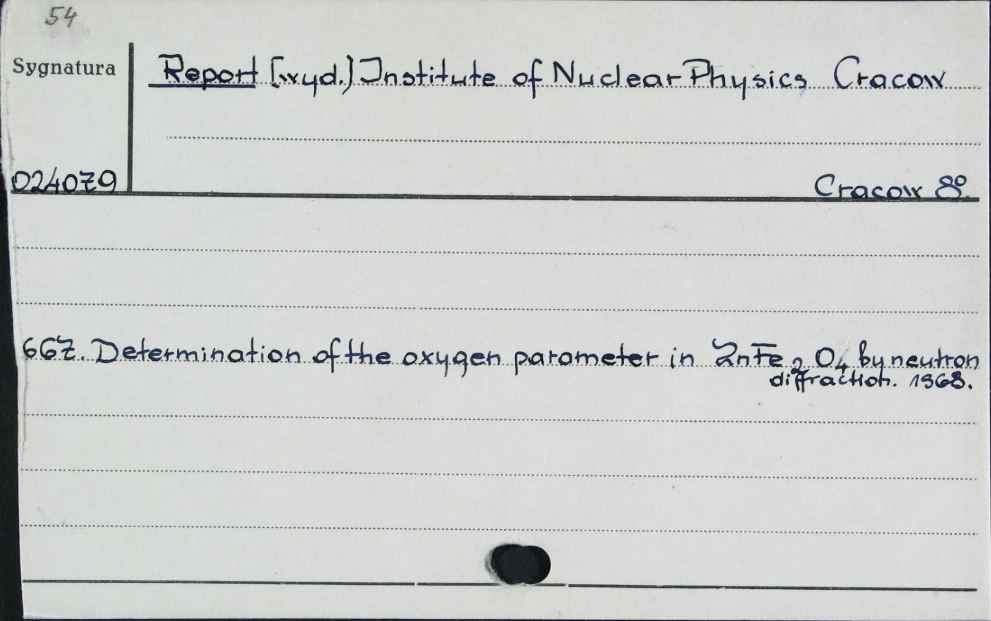 54
Sygnatura
Report [wyd.] Institute of Nuclear Physics Cracow
024079
Cracow 8º
667. Determination of the oxygen parameter in ZnFe₂O₄ by neutron
diffraction. 1968.